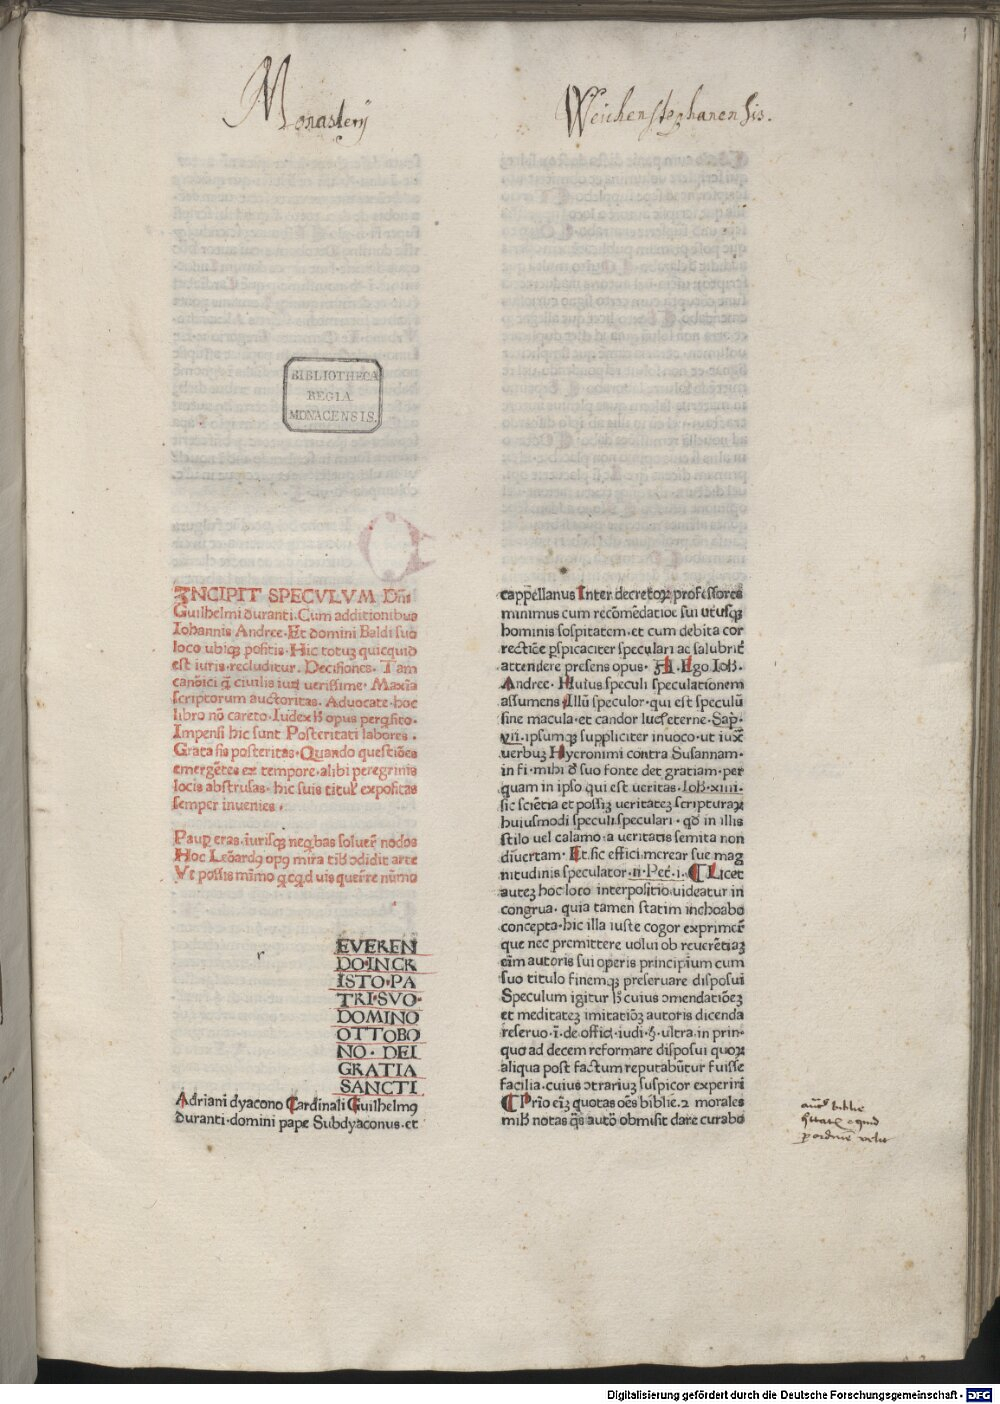 Monasterij Weichenstephanensis.
BIBLIOTHECA
REGIA
MONACENSIS.
INCIPIT SPECVLVM Dñi
Guilhelmi duranti. Cum additionibus
Iohannis Andree. Et domini Baldi suo
loco ubiqꝫ positis. Hic totuꝫ quicquid
est iuris recluditur. Decisiones. Tam
canõici qꝫ ciuilis iuris uerissime. Maxĩa
scriptorum auctoritas. Aduocate hoc
libro nõ careto. Iudex hͦ opus perqsito.
Impensi hic sunt Posteritati labores.
Grata sis posteritas. Quando questiões
emergẽtes ex tempore, alibi peregrinis
locis abstrusas. hic suis titul' expositas
semper inuenies.
Paup eras, iurisqꝫ neqbas soluer̃ nodos
Hoc Leõardꝯ opꝯ mira tibi ↄdidit arte
Vt possis mĩmo qcqd uis querr̃e nũmo
EVEREN
DO·INCR
ISTO·PA
TRI·SVO·
DOMINO
OTTOBO
NO·DEI
GRATIA
SANCTI
Adriani dyacono Cardinali Guilhelmꝯ
duranti·domini pape Subdyaconus·et
cappellanus Inter decretoꝝ professores
minimus cum recõmẽdatiõe sui utrusqꝫ
hominis sospitatem·et cum debita cor
rectiõe pspicaciter speculari ac salubrit̃
attendere presens opus· Ego Ioh̃.
Andree· Huius speculi speculationem
assumens Illũ speculor·qui est speculũ
sine macula·et candor lucis eterne·Sap̃.
vii·ipsumqꝫ suppliciter inuoco·ut iux̃
uerbuꝫ Hycronimi contra Susannam·
in fi·mihi d̃ suo fonte det gratiam·per
quam in ipso qui est ueritas·Ioh̃·xiiii·
sic sciẽtia et possiꝫ ueritateꝫ scripturaꝝ
huiusmodi speculi speculari·qd̃ in illis
stilo uel calamo·a ueritatis semita non
diuertam·Et sic effici merear sue mag
nitudinis speculator·ii·Pet̃·i· ¶ Licet
auteꝫ hoc loco interpositio uideatur in
congrua· quia tamen statim inchoabo
concepta·hic illa iuste cogor exprimer̃
que nec premittere uolui ob reuerẽtiaꝫ
eĩm autoris sui operis principium cum
suo titulo finemqꝫ preseruare disposui
Speculum igitur h̃ cuius ↄmendatiõeꝫ
et meditateꝫ imitatiõꝫ autoris dicenda
reseruo·ĩ·de offici·iudi·§·ultra·in prin·
quo ad decem reformare disposui quoꝝ
aliqua post factum reputabũtur fuisse
facilia·cuius ↄtrariuꝫ suspicor experiri
¶ Prĩo eiꝫ quotas oẽs biblie·2 morales
mihi notas qs̃ autõ obmisit dare curabo